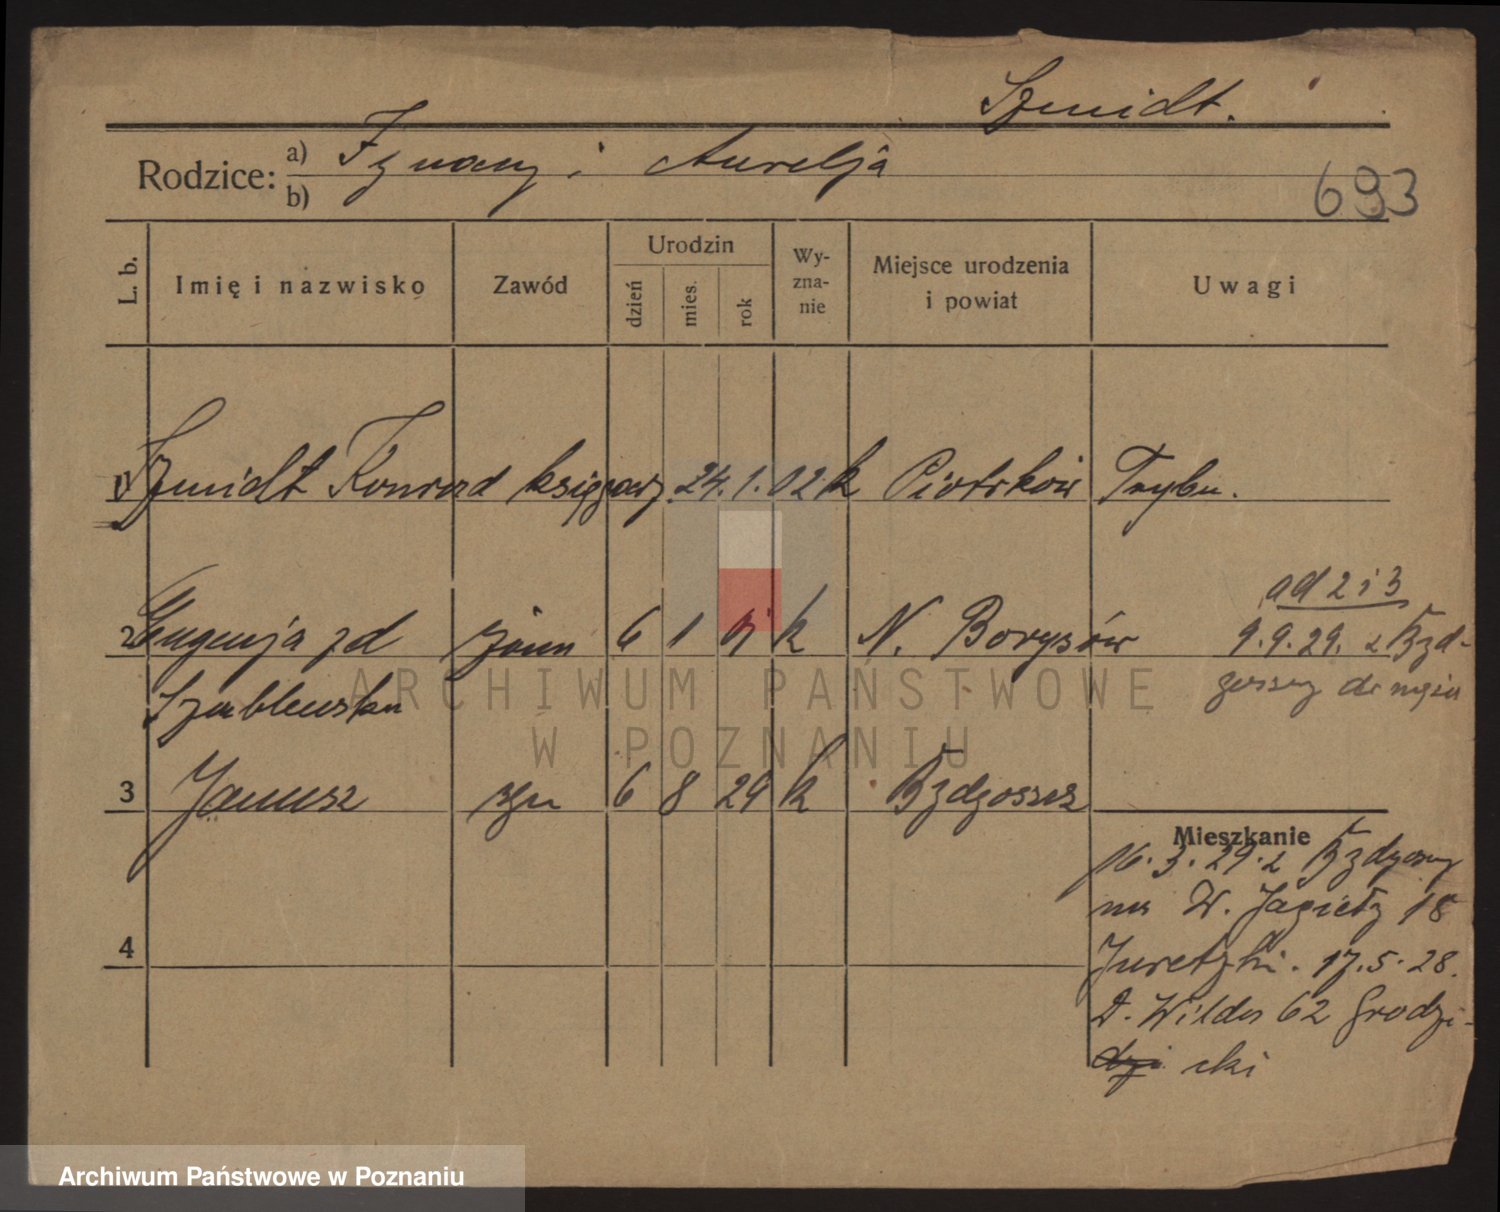 Szmidt.
Rodzice: a) Ignacy i Aurelja
b)
693
L. b. Imię i nazwisko Zawód Urodzin dzień mies. rok Wy-zna-nie Miejsce urodzenia i powiat Uwagi
1 Szmidt Konrad księgarz 24. 1. 02 k Piotrków Trybu.
ad 2 i 3
2 Eugenja zd żona 6 1 k N. Borysów 9.9.29. z Byd-
Szablewska goszczy do męża
3 Janusz syn 6 8 29 k Bydgoszcz
Mieszkanie
16.3.29. z Bydgoszczy
na W. Jagiełły 18
17.5.28.
D. Wilda 62 Grodzi-
dzi cki
4
ARCHIWUM PAŃSTWOWE
W POZNANIU
Archiwum Państwowe w Poznaniu